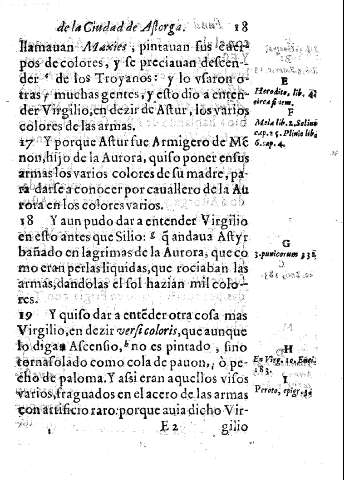 de la Ciudad de Astorga. 18
llamauan Maxies, pintauan sus cuer-
pos de colores, y se preciauan descen-
der e de los Troyanos: y lo vsaron o-
tras f muchas gentes, y esto dio a enten-
der Virgilio, en dezir de Astur, los varios
colores de las armas.
17 Y porque Astur fue Armigero de Me
non, hijo de la Aurora, quiso poner en sus
armas los varios colores de su madre, pa
ra darse a conocer por cauallero de la Au
rora en los colores varios.
18 Y aun pudo dar a entender Virgilio
en esto antes que Silio: g q̃ andaua Astyr
bañado en lagrimas de la Aurora, que co
mo eran perlas liquidas, que rociaban las
armas, dandolas el sol hazian mil colo-
res.
19 Y quiso dar a entẽder otra cosa mas
Virgilio, en dezir versi coloris, que aunque
lo digan Ascensio, h no es pintado, sino
tornasolado como cola de pauon, i ò pe-
cho de paloma. Y assi eran aquellos visos
varios, fraguados en el acero de las armas
con artificio raro: porque auia dicho Vir-
E 2 gilio
E
Herodito, lib. 4.
circa fi nm.
F
Mela lib. 2. Solino
cap. 25. Plinio lib.
6. cap. 4.
G
3. punicorum 332.
H
En Virg. 10. Enei.
183.
I
Peroto, epigr. 3.